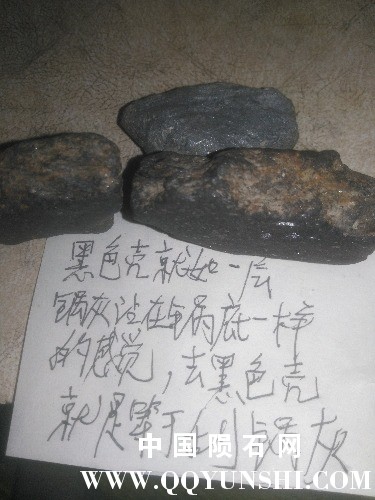 黑色壳就如一层
锅灰沾在锅底一样
的感觉,去黑色壳
就是等于刮锅灰
中国陨石网
WWW.QQYUNSHI.COM